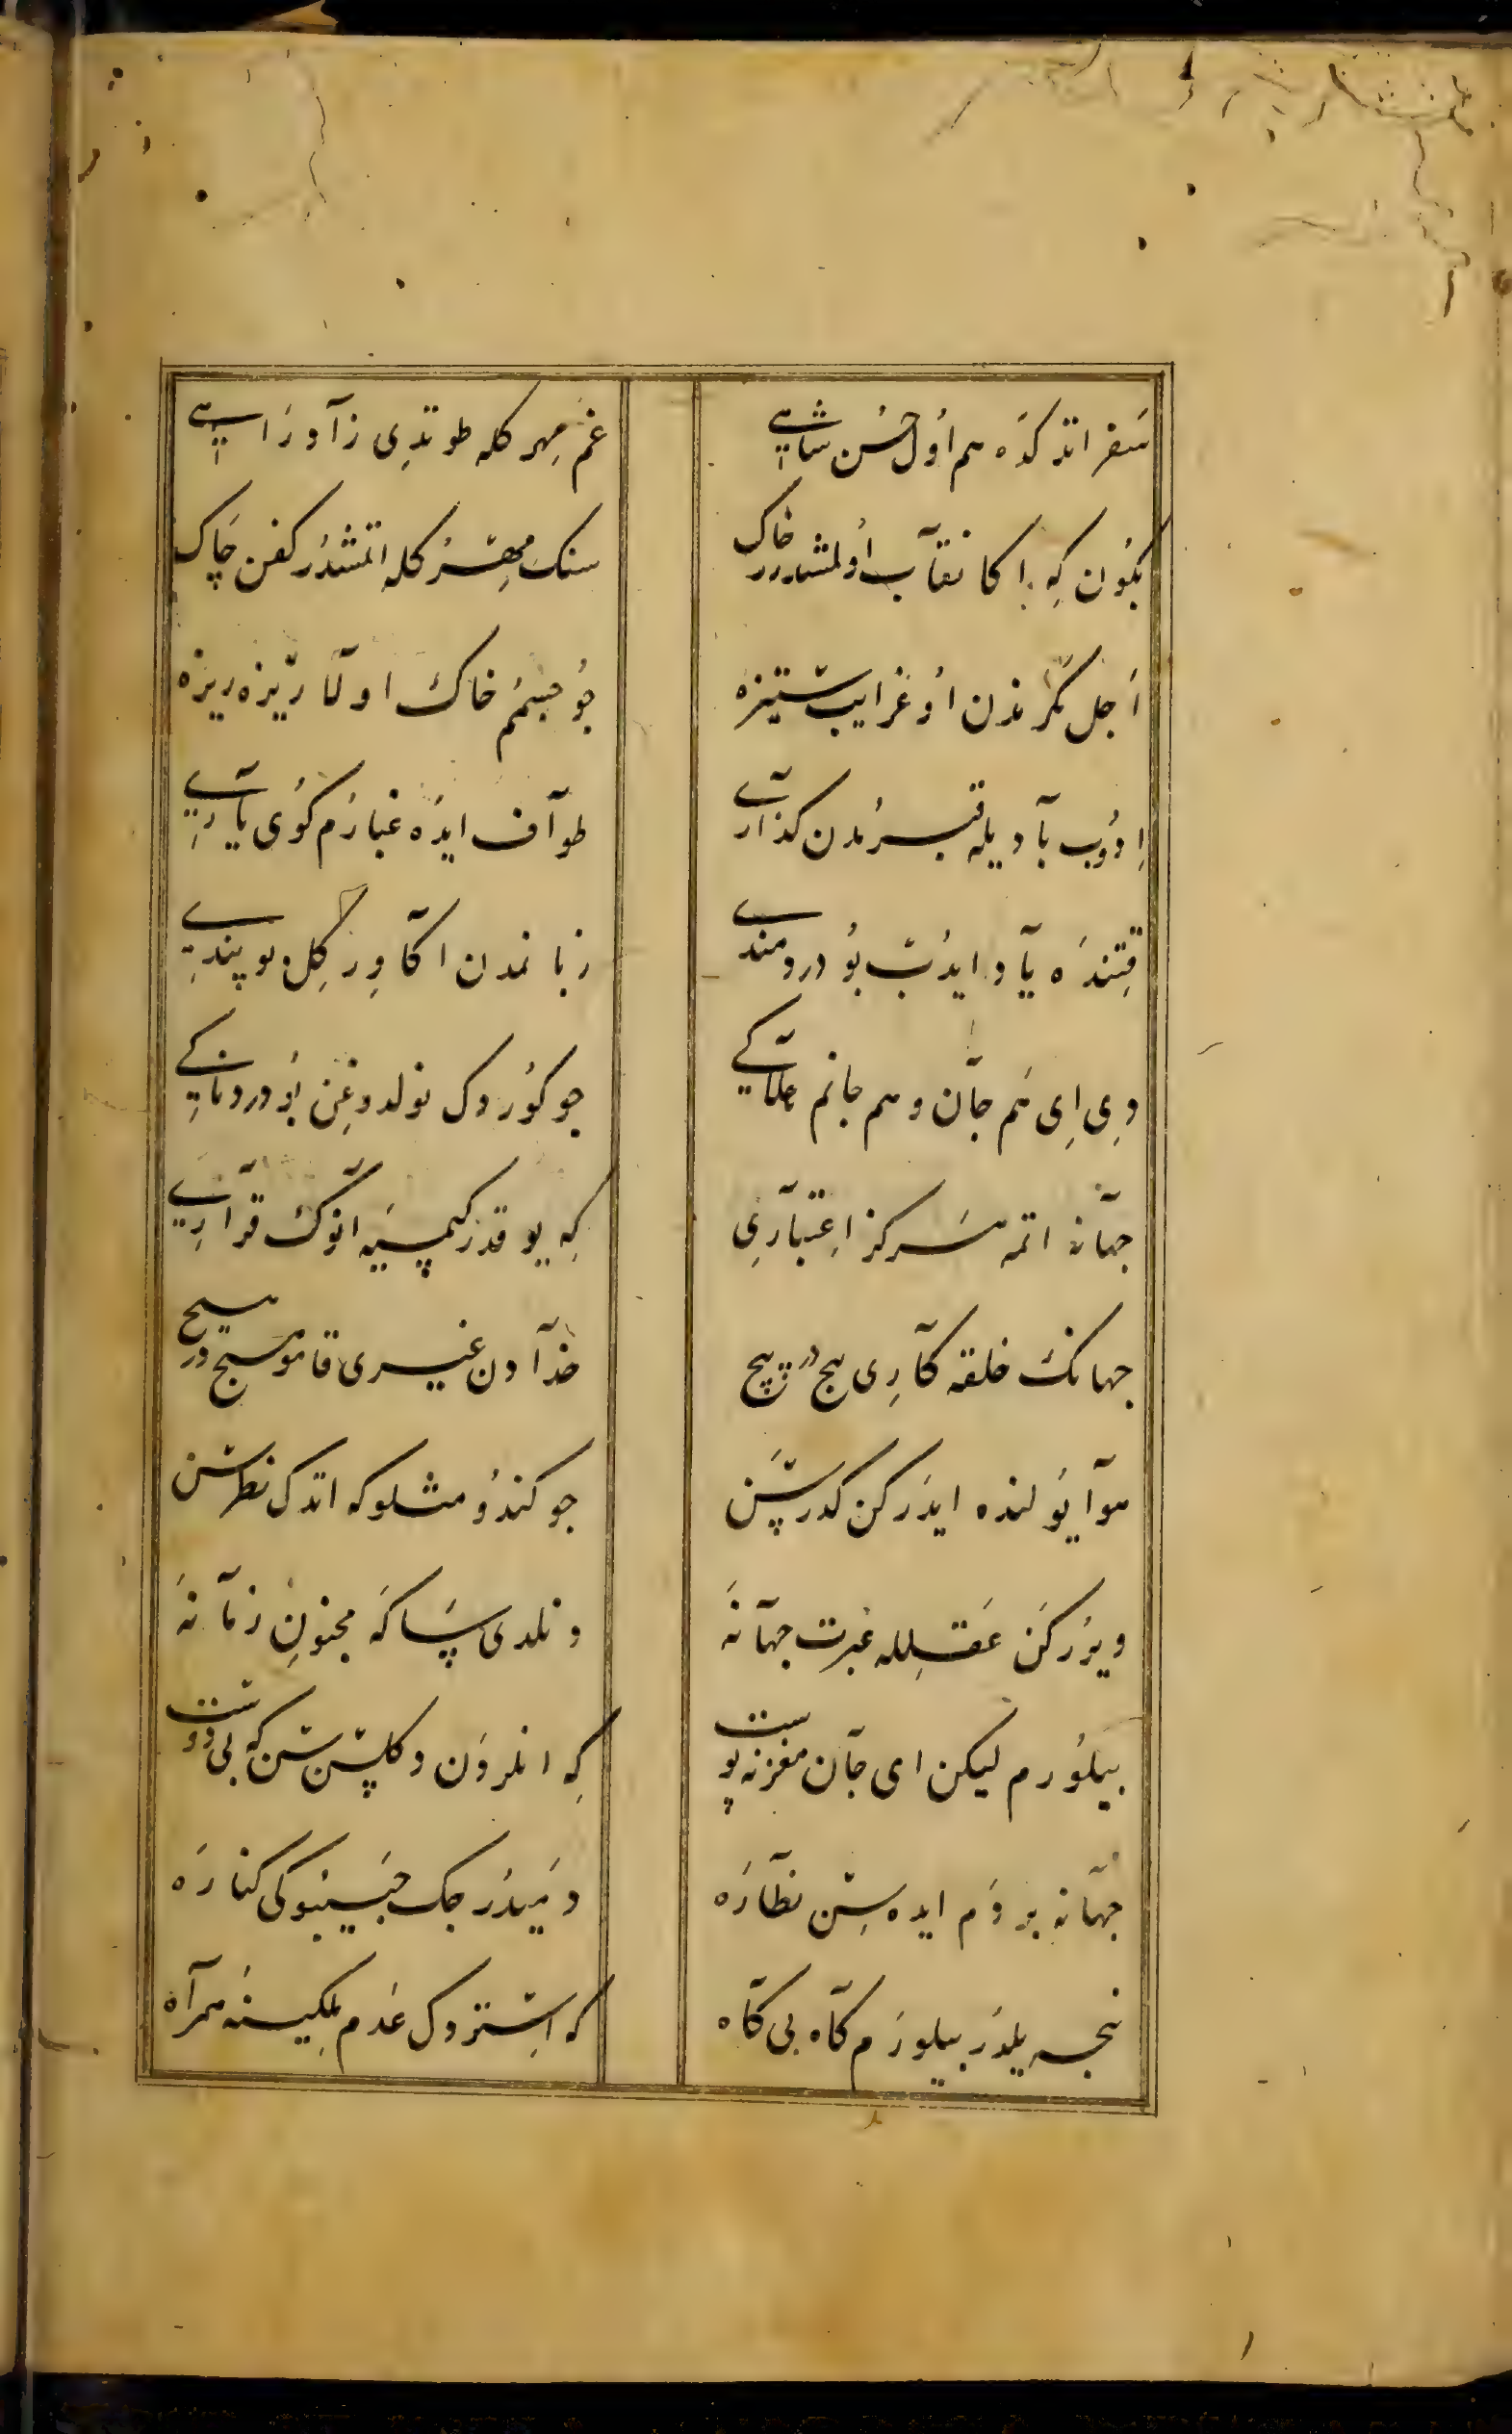 سَفر اتدکدَه هم اوُل حُسن شاهی غم مِهرکله طوتدِی زآد و رَاهی
بکُون کِه بکا نقآب اوُلمشدرر خاک سنک مِهرُکله اتمشدُر کفن چَاک
اَجل مکرندن اوُ غرایب ستیزه چوُ جسمُم خاک اولآ ریزه ریزه
اِدوُب بآد یله قبرمُدن کذآری طوآف ایدَه غبارُم کوُی یآرِی
قِتندَه یآد ایدُب بوُ دردمندی زباندن اکآ وِر کِل بو پندِی
دِی اِی هَم جآن و هم جانم هلآکی چو کوُردک نولدوغِن بوُ دردناکِی
جهآنه اتمه هَرکز اعِتبآرِی کِه یوقدر کیمسَیه انوُک قرآرِی
جهانک خلقه کآرِی پیچ در پیچ خدآدن غیری قامو هیچ در هیچ
هوآ یوُلنده ایدَرکن کدرسَن چو کندوُ مثلوکه اتدک نظر سن
ویرُرکَن عَقلِله عبرت جهآنَه دنلدی سَاکَه مجنونِ زمآنَه
بیلوُرم لیکن ای جآن مغزنه پوست کِه انلر دَن دکلسِن سَن که بی دوست
جهآنه بر دَم ایده سِن نظآرَه دَمیدُر جک حبَیبوکی کنارَه
نیجه یلدُر بیلورَم کآه بی کآه که اِستردک عَدم مُلکِینه همرآه